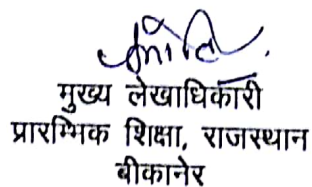 मुख्य लेखाधिकारी
प्रारम्भिक शिक्षा, राजस्थान
बीकानेर